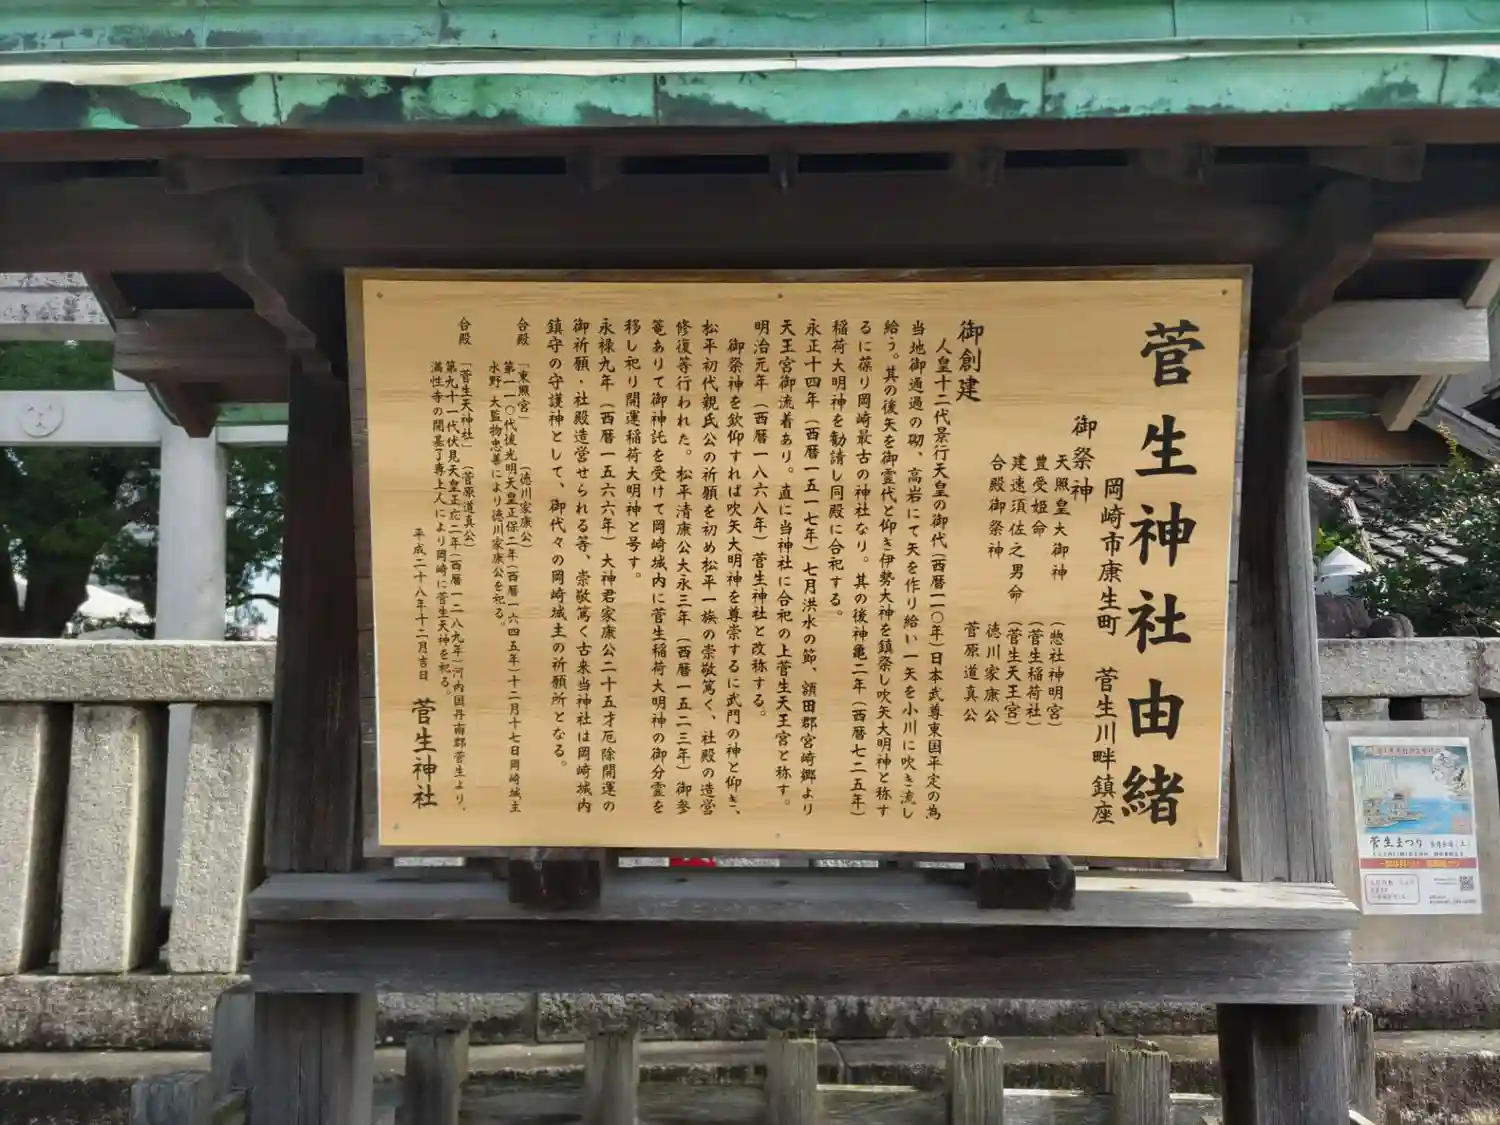 菅生神社由緒
岡崎市康生町　菅生川畔鎮座
御祭神
天照皇大御神　（惣社神明宮）
豊受姫命　（菅生稲荷社）
建速須佐之男命　（菅生天王宮）
合殿御祭神　徳川家康公
菅原道真公
御創建
人皇十二代景行天皇の御代（西暦一一〇年）日本武尊東国平定の為
当地御通過の砌、高岩にて矢を作り給い一矢を小川に吹き流し
給う。其の後矢を御霊代と仰き伊勢大神を鎮祭し吹矢大明神と称す
るに葆り岡崎最古の神社なり。其の後神亀二年（西暦七二五年）
稲荷大明神を勧請し同殿に合祀する。
永正十四年（西暦一五一七年）七月洪水の節、額田郡宮崎郷より
天王宮御流着あり。直に当神社に合祀の上菅生天王宮と称す。
明治元年（西暦一八六八年）菅生神社と改称する。
御祭神を欽仰すれば吹矢大明神を尊崇するに武門の神と仰き、
松平初代親氏公の祈願を初め松平一族の崇敬篤く、社殿の造営
修復等行われた。松平清康公大永三年（西暦一五二三年）御参
篭ありて御神託を受けて岡崎城内に菅生稲荷大明神の御分霊を
移し祀り開運稲荷大明神と号す。
永禄九年（西暦一五六六年）大神君家康公二十五才厄除開運の
御祈願・社殿造営せられる等、崇敬篤く古来当神社は岡崎城内
鎮守の守護神として、御代々の岡崎城主の祈願所となる。
合殿　「東照宮」　（徳川家康公）
第一一〇代後光明天皇正保二年（西暦一六四五年）十二月十七日岡崎城主
水野大監物忠善により徳川家康公を祀る。
合殿　「菅生天神社」　（菅原道真公）
第九十一代伏見天皇正応二年（西暦一二八九年）河内国丹南郡菅生より、
満性寺の開基了専上人により岡崎に菅生天神を祀る。
平成二十八年十二月吉日
菅生神社
菅生まつり